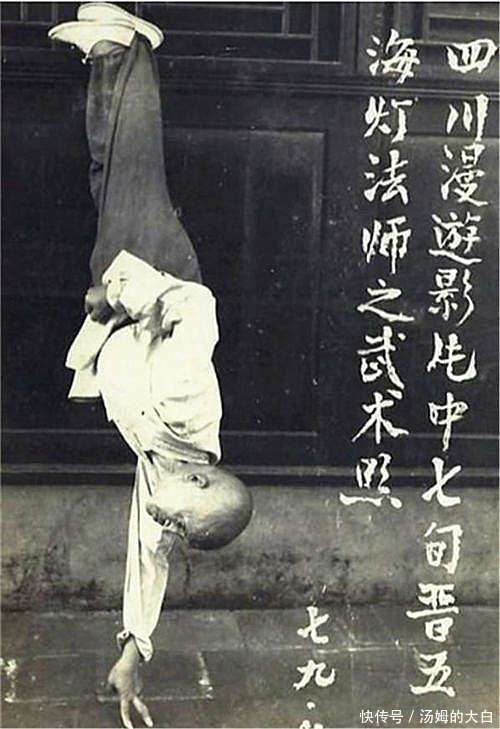 四川漫遊影片中七旬晋五
海灯法师之武术照
七九·
快传号/汤姆的大白